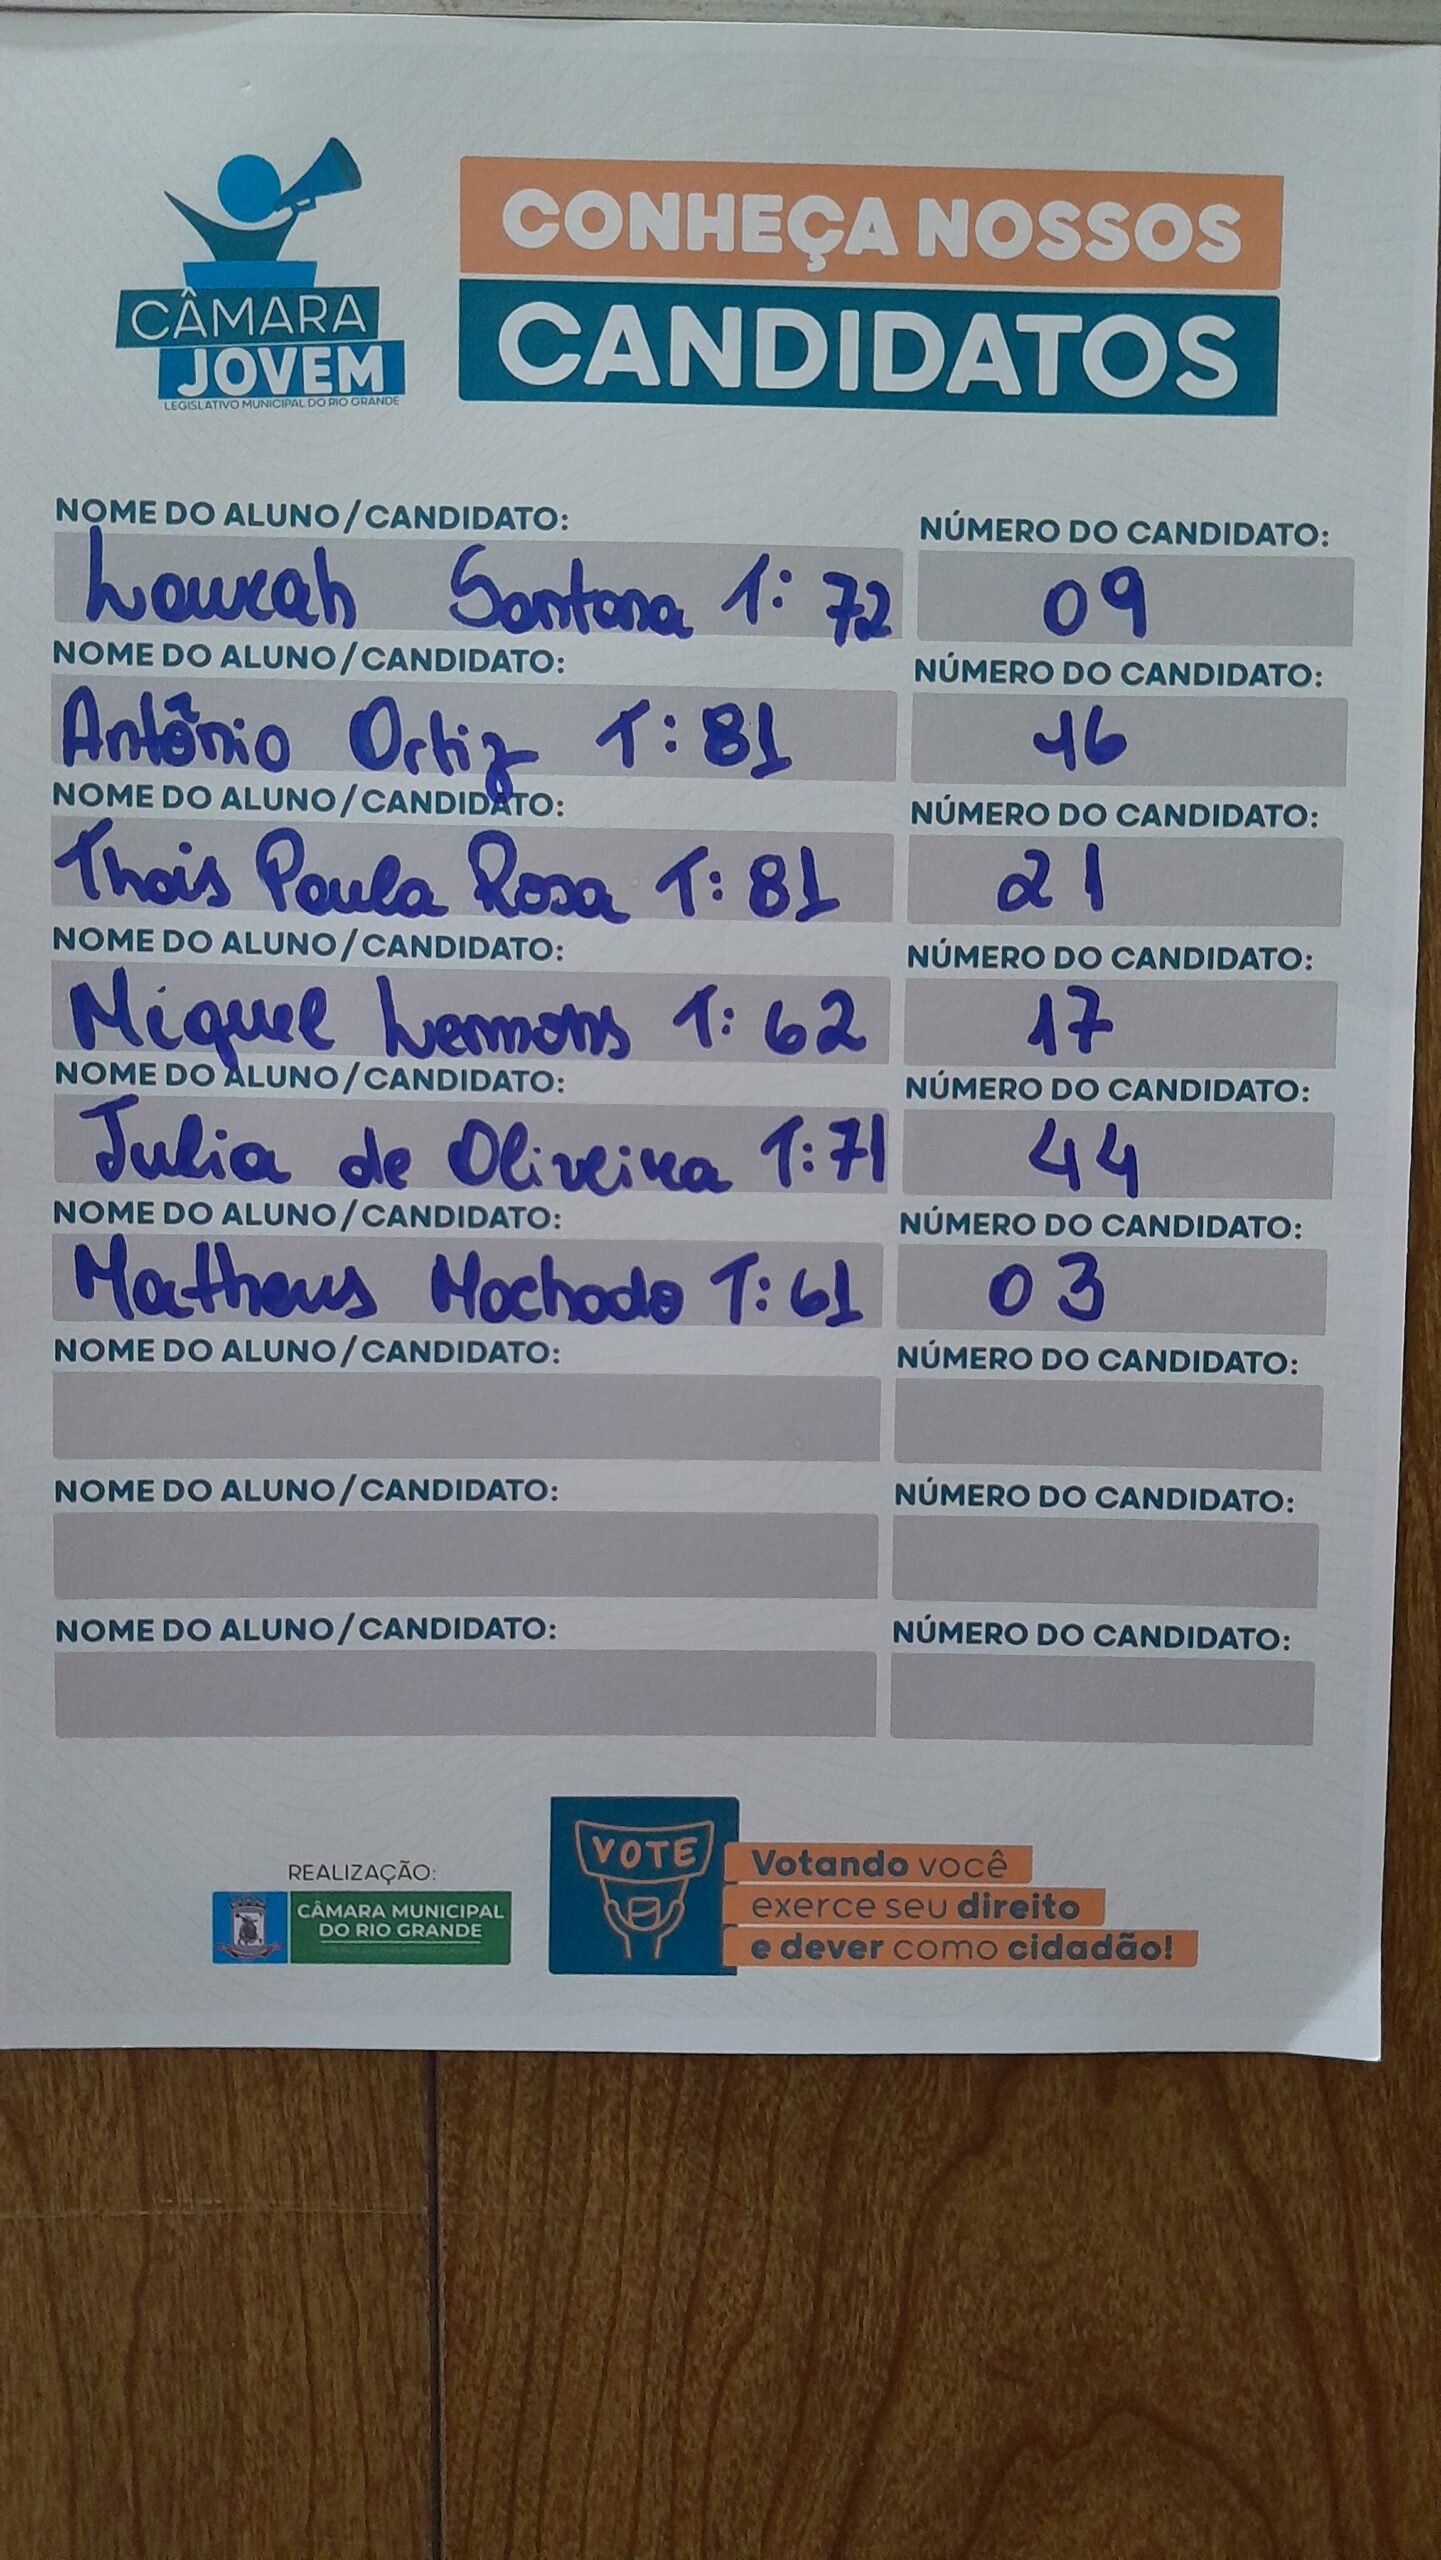 CÂMARA
JOVEM
LEGISLATIVO MUNICIPAL DO RIO GRANDE
CONHEÇA NOSSOS
CANDIDATOS
NOME DO ALUNO/CANDIDATO: NÚMERO DO CANDIDATO:
Lourah Santana T: 72 09
NOME DO ALUNO/CANDIDATO: NÚMERO DO CANDIDATO:
Antônio Ortiz T: 81 16
NOME DO ALUNO/CANDIDATO: NÚMERO DO CANDIDATO:
Thais Paula Rosa T: 81 21
NOME DO ALUNO/CANDIDATO: NÚMERO DO CANDIDATO:
Miguel T: 62 17
NOME DO ALUNO/CANDIDATO: NÚMERO DO CANDIDATO:
Julia de Oliveira T: 71 44
NOME DO ALUNO/CANDIDATO: NÚMERO DO CANDIDATO:
Matheus Machado T: 61 03
NOME DO ALUNO/CANDIDATO: NÚMERO DO CANDIDATO:
NOME DO ALUNO/CANDIDATO: NÚMERO DO CANDIDATO:
NOME DO ALUNO/CANDIDATO: NÚMERO DO CANDIDATO:
REALIZAÇÃO:
CÂMARA MUNICIPAL
DO RIO GRANDE
VOTE
Votando você
exerce seu direito
e dever como cidadão!